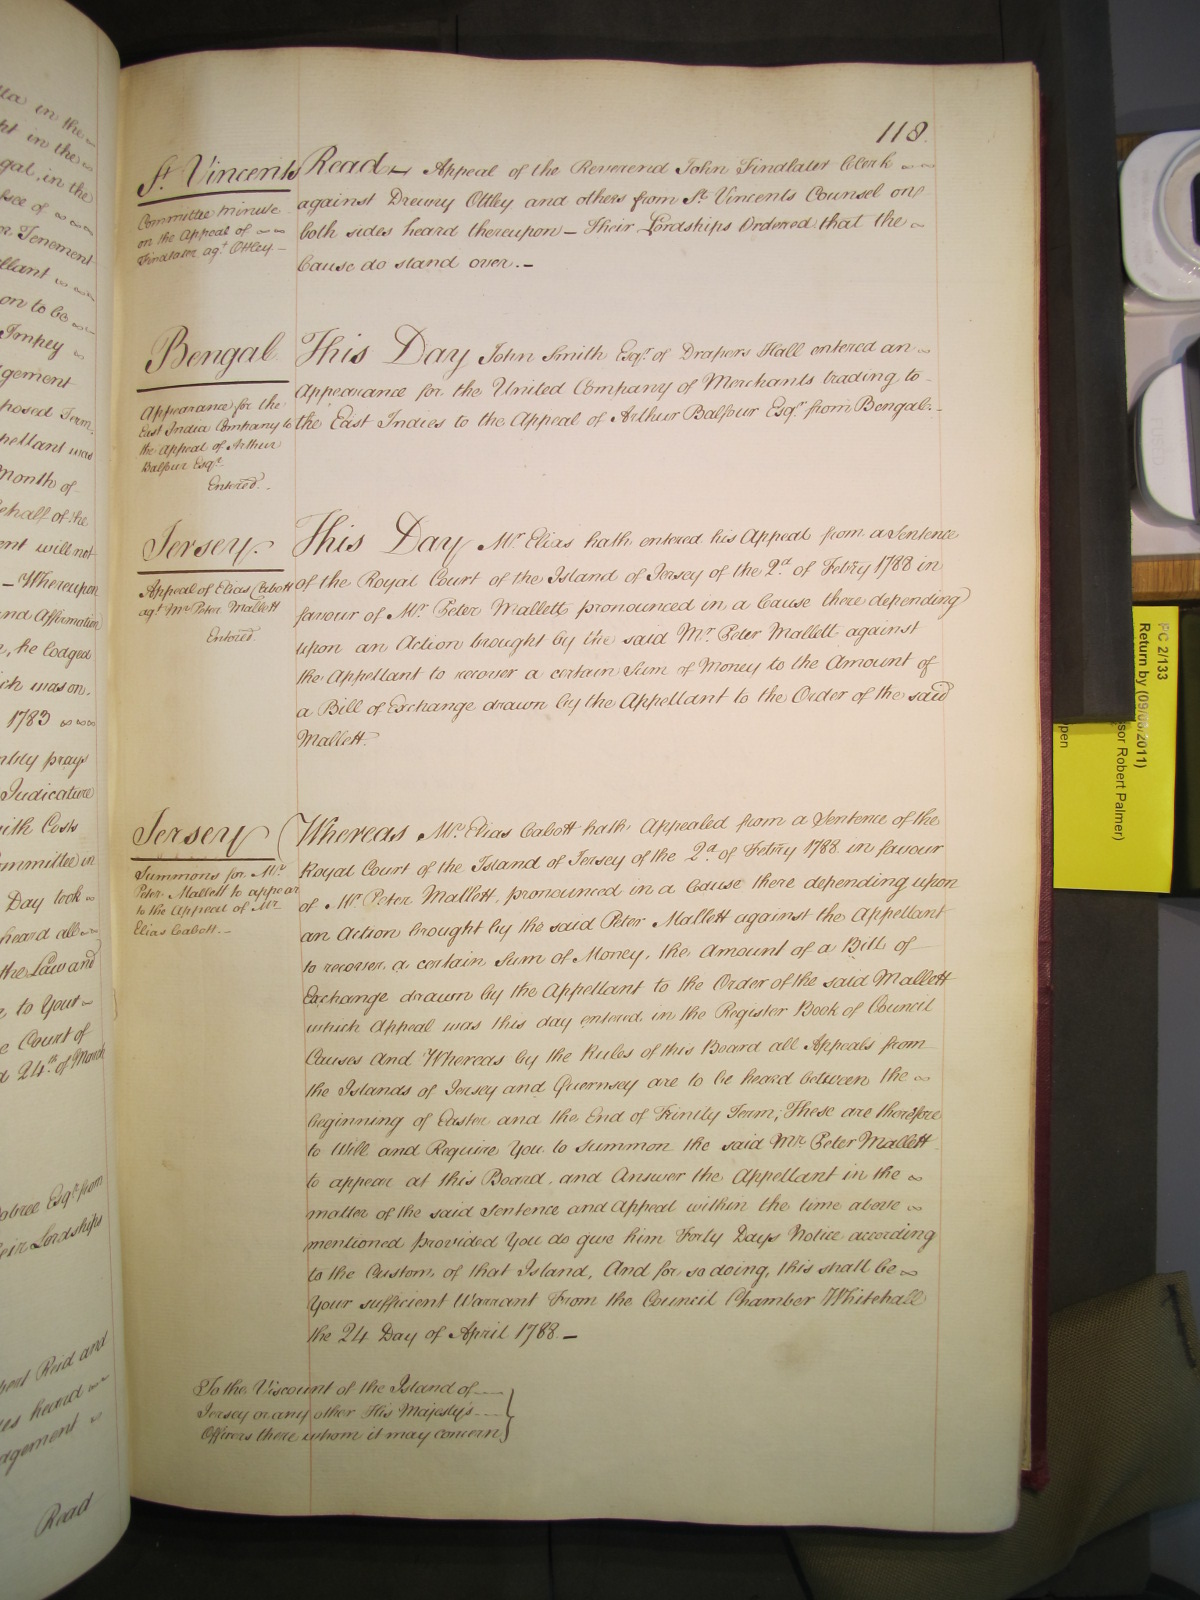 118.
St. Vincents
Committee minute
on the Appeal of
Findlater agt. Ottley
Read Appeal of the Reverend John Findlater Clerk
against Drewry Ottley and others from St. Vincents Counsel on
both sides heard thereupon — Their Lordships Ordered that the
Cause do stand over. —
Bengal
Appearance for the
East India Company to
the Appeal of Arthur
Balfour Esqr.
Entered.
This Day John Smith Esqr. of Drapers Hall entered an
Appearance for the United Company of Merchants trading to
the East Indies to the Appeal of Arthur Balfour Esqr. from Bengal. —
Jersey.
Appeal of Elias Cabott
agt. Mr. Peter Mallett
Entered
This Day Mr. Elias hath entered his Appeal from a Sentence
of the Royal Court of the Island of Jersey of the 2d. of Febry 1788 in
favour of Mr. Peter Mallett pronounced in a Cause there depending
upon an Action brought by the said Mr. Peter Mallett against
the Appellant to recover a certain Sum of Money to the Amount of
a Bill of Exchange drawn by the Appellant to the Order of the said
Mallett.
Jersey
Summons for Mr.
Peter Mallett to appear
to the Appeal of Mr.
Elias Cabott. —
Whereas Mr. Elias Cabott hath Appealed from a Sentence of the
Royal Court of the Island of Jersey of the 2d. of Febry 1788 in favour
of Mr. Peter Mallett, pronounced in a Cause there depending upon
an Action brought by the said Peter Mallett against the Appellant
to recover a certain Sum of Money, the Amount of a Bill of
Exchange drawn by the Appellant to the Order of the said Mallett
which Appeal was this day entered in the Register Book of Council
Causes And Whereas by the Rules of this Board all Appeals from
the Islands of Jersey and Guernsey are to be heard between the
beginning of Easter and the End of Trinity Term, These are therefore
to Will and Require You to summon the said Mr. Peter Mallett
to appear at this Board, and Answer the Appellant in the
matter of the said Sentence and Appeal within the time above
mentioned provided You do give him Forty Days Notice according
to the Custom of that Island, And for so doing, this shall be
Your sufficient Warrant From the Council Chamber Whitehall
the 24 Day of April 1788 —
To the Viscount of the Island of
Jersey or any other His Majesty's
Officers there whom it may concern
in the
in the
in the
of
Tenement
on to be
Impey
Month of
behalf of the
will not
— Whereupon
and Affirmation
he lodged
was on
1783
prays
Judicature
with Costs
Committee in
Day took
heard all
the Law and
to Your
Court of
24th. of March
Esqr. from
Lordships
Reid and
heard
Read
PC 2/133
Return by (09/
2011)
sor Robert Palmer)
pen